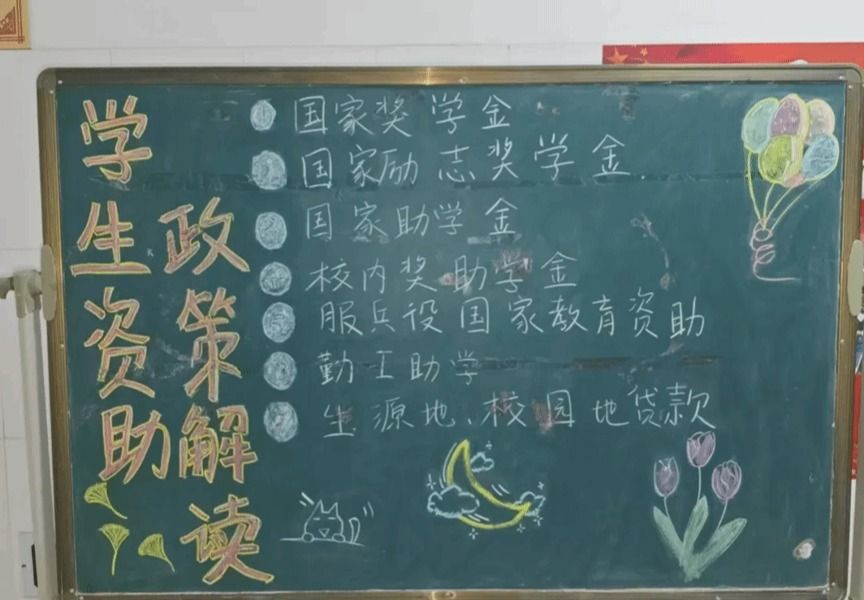 学生资助
政策解读
① 国家奖学金
国家励志奖学金
国家助学金
校内奖助学金
服兵役国家教育资助
勤工助学
生源地、校园地贷款